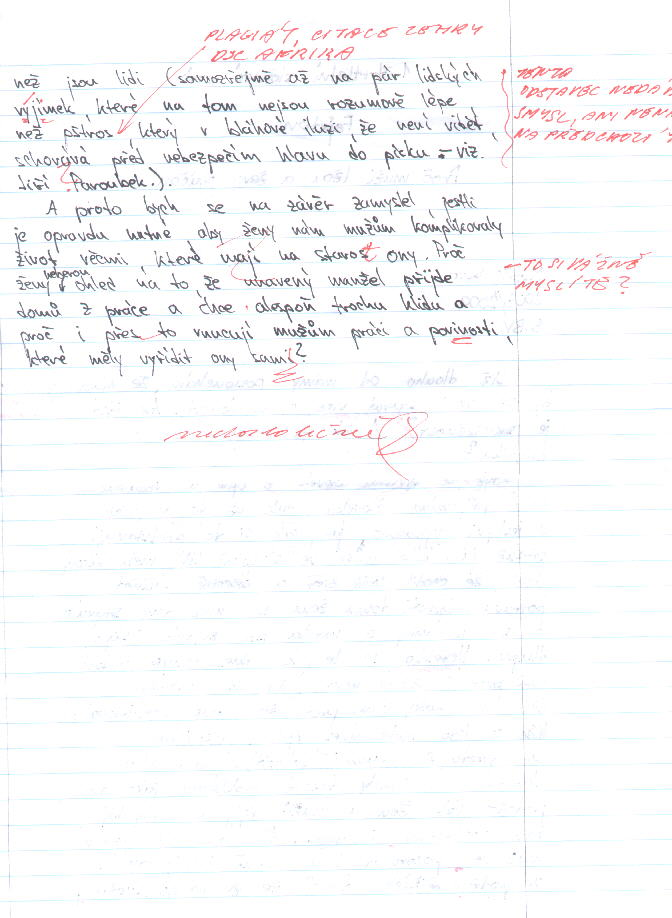 PLAGIÁT, CITACE ZEMRY
DSC AFRIKA
než jsou lidi (samozřejmě až na pár lidských
vyjímek, které na tom nejsou rozumově lépe
než pštros, který v bláhové iluzi, že není vidět,
schovává před nebezpečím hlavu do písku – viz.
Jiří Paroubek.).
TENTO
ODSTAVEC NEDÁVÁ
SMYSL, ANI NENA
NA PŘEDCHOZÍ
A proto bych se na závěr zamyslel, jestli
je opravdu nutné aby ženy nám mužům komplikovaly
život věcmi, které mají na starost ony. Proč
ženy neberou ohled na to že unavený manžel přijde
domů z práce a chce alespoň trochu klidu a
proč i přes to vnucují mužům práci a povinosti,
které měly vyřídit ony sami?
– TO SI VÁŽNĚ
MYSLÍTE?
nedostatečně